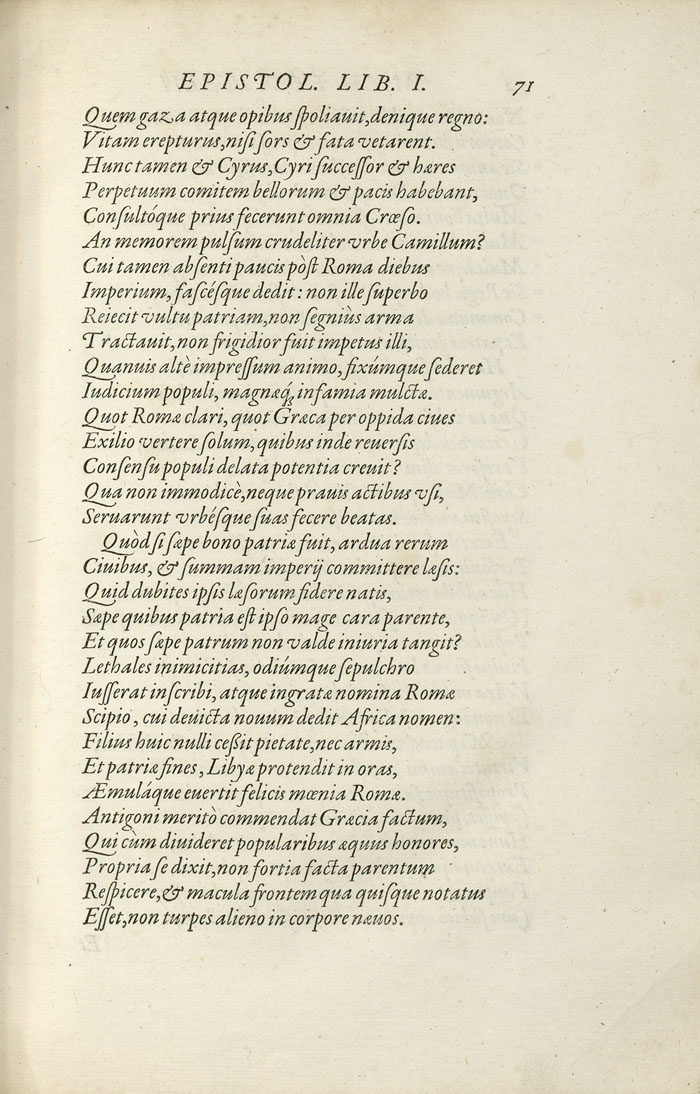 EPISTOL. LIB. I. 71
Quem gaza atque opibus spoliauit, denique regno:
Vitam erepturus, nisi sors & fata vetarent.
Hunc tamen & Cyrus, Cyri successor & hæres
Perpetuum comitem bellorum & pacis habebant,
Consultóque prius fecerunt omnia Crœso.
An memorem pulsum crudeliter vrbe Camillum?
Cui tamen absenti paucis pòst Roma diebus
Imperium, fascésque dedit: non ille superbo
Reiecit vultu patriam, non segniùs arma
Tractauit, non frigidior fuit impetus illi,
Quanuis altè impressum animo, fixúmque sederet
Iudicium populi, magnæq́; infamia mulctæ.
Quot Romæ clari, quot Græca per oppida ciues
Exilio vertere solum, quibus inde reuersis
Consensu populi delata potentia creuit?
Qua non immodicè, neque prauis actibus vsi,
Seruarunt vrbésque suas fecere beatas.
Quòd si sæpe bono patriæ fuit, ardua rerum
Ciuibus, & summam imperij committere læsis:
Quid dubites ipsis læsorum fidere natis,
Sæpe quibus patria est ipso mage cara parente,
Et quos sæpe patrum non valde iniuria tangit?
Lethales inimicitias, odiúmque sepulchro
Iusserat inscribi, atque ingratæ nomina Romæ
Scipio, cui deuicta nouum dedit Africa nomen:
Filius huic nulli cessit pietate, nec armis,
Et patriæ fines, Libyæ protendit in oras,
Æmuláque euertit felicis mœnia Romæ.
Antigoni meritò commendat Græcia factum,
Qui cùm diuideret popularibus æquus honores,
Propria se dixit, non fortia facta parentum
Respicere, & macula frontem qua quisque notatus
Esset, non turpes alieno in corpore næuos.